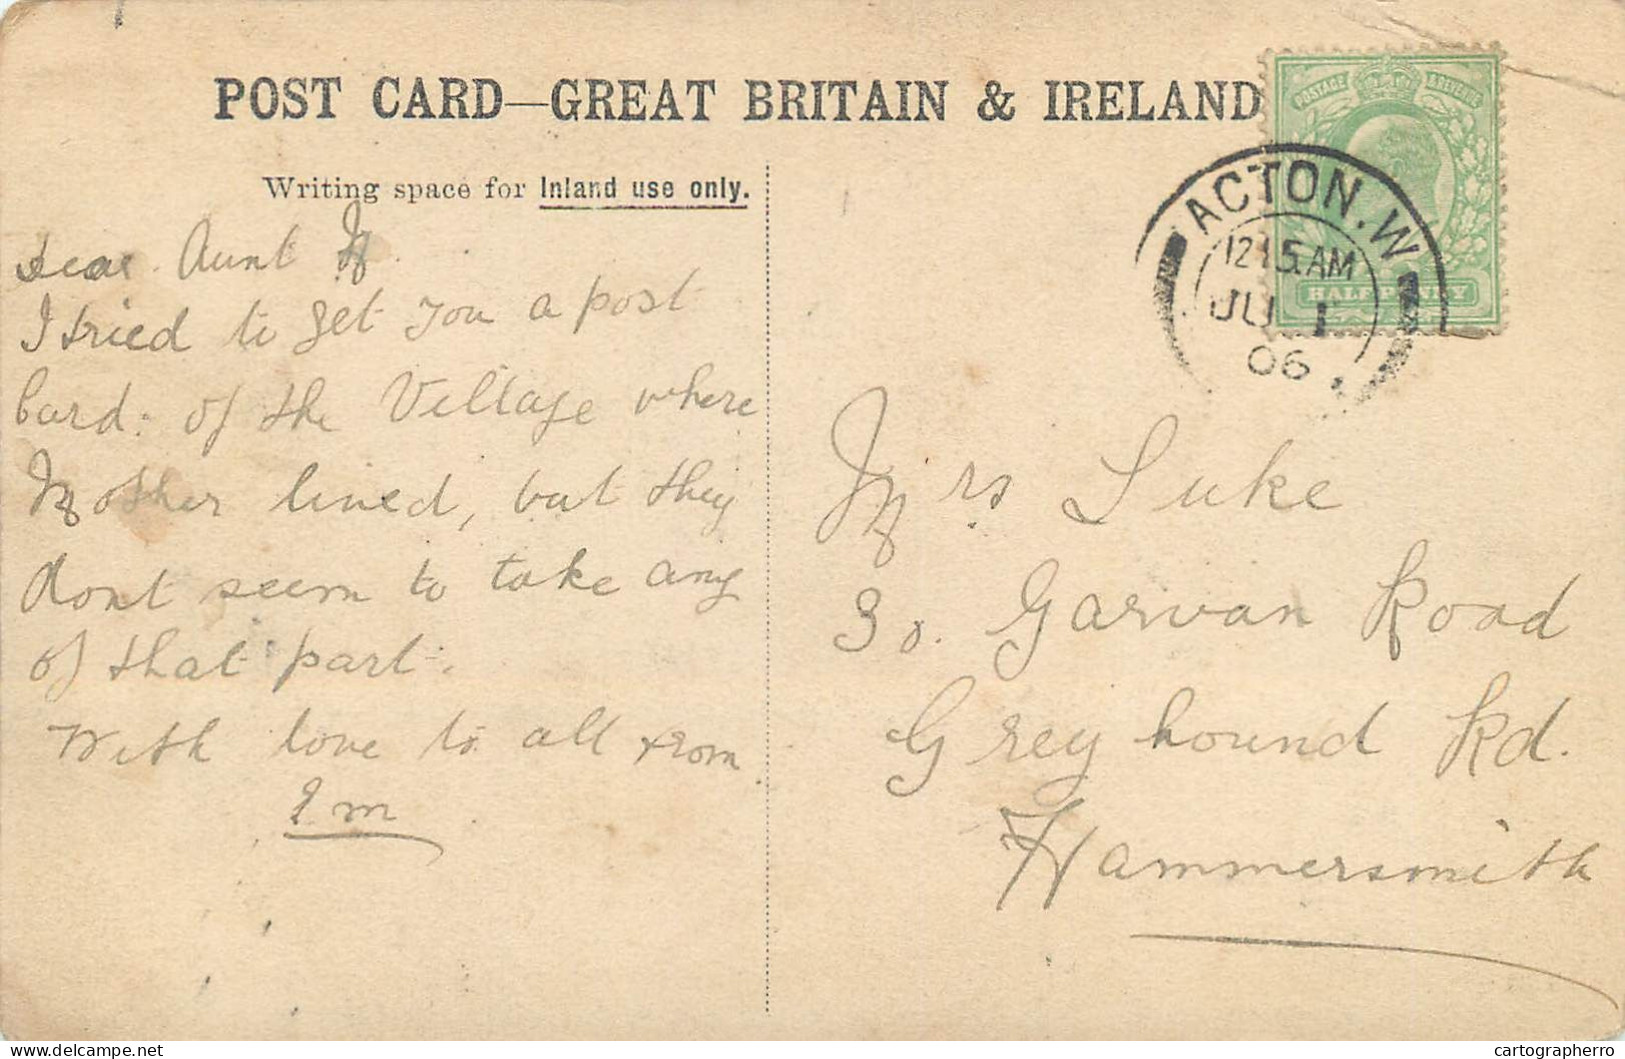 POST CARD—GREAT BRITAIN & IRELAND
Writing space for Inland use only.
Dear Aunt M
I tried to get you a post
Card: of the Village where
Mother lived, but they
dont seem to take any
of that part.
With love to all from
Em
POSTAGE & REVENUE
HALFPENNY
ACTON. W
12 15 AM
JU 1
06
Mrs Luke
30. Garvan Road
Greyhound Rd.
Hammersmith
www.delcampe.net
cartographerro